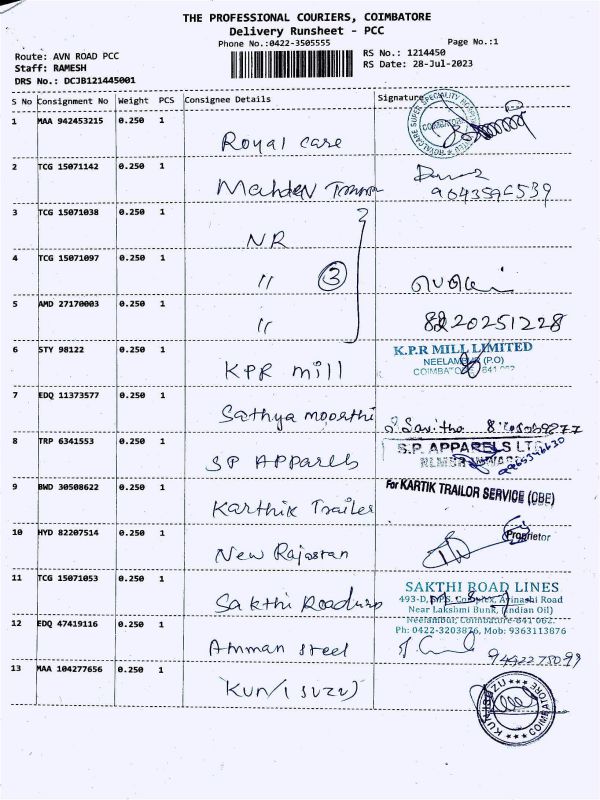 THE PROFESSIONAL COURIERS, COIMBATORE
Delivery Runsheet - PCC
Phone No.:0422-3505555
Page No.:1
Route: AVN ROAD PCC
Staff: RAMESH
DRS No.: DCJB121445001
RS No.: 1214450
RS Date: 28-Jul-2023
S No Consignment No Weight PCS Consignee Details Signature
1 MAA 942453215 0.250 1
Royal care
COIMBATORE
2 TCG 15071142 0.250 1
Mahden
3 TCG 15071038 0.250 1
NR
4 TCG 15071097 0.250 1
" 3
5 AMD 27170003 0.250 1
"
8220251228
6 STY 98122 0.250 1
KPR mill
K.P.R MILL LIMITED
NEELAMBUR (P.O)
7 EDQ 11373577 0.250 1
Sathya moorthi
Savitha
8 TRP 6341553 0.250 1
SP APPArels
S.P. APPARELS LTD
9 BWD 30508622 0.250 1
Karthik Trailes
For KARTIK TRAILOR SERVICE (CBE)
Proprietor
10 HYD 82207514 0.250 1
New Rajastan
11 TCG 15071053 0.250 1
Sakthi Roadlines
SAKTHI ROAD LINES
Avinashi Road
Near Lakshmi Bunk, (Indian Oil)
Neelambur, Coimbatore-641 062.
Ph: 0422-3203876, Mob: 9363113876
12 EDQ 47419116 0.250 1
Amman steel
13 MAA 104277656 0.250 1
KUN (ISUZU)
KUN ISUZU
COIMBATORE